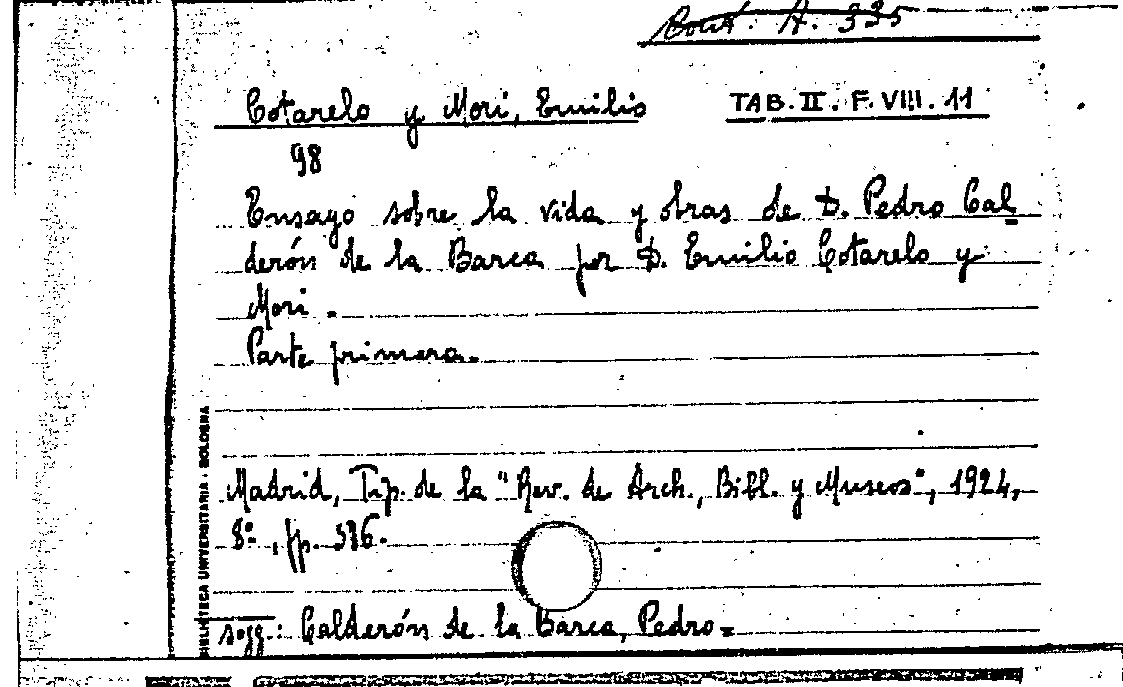 Cout. A. 335
Cotarelo y Mori, Emilio
TAB. II. F. VIII. 11
98
Ensayo sobre la vida y obras de D. Pedro Cal
derón de la Barca por D. Emilio Cotarelo y
Mori.
Parte primera.
Madrid, Tip. de la "Rev. de Arch., Bibl. y Museos", 1924,
8º, pp. 386.
sogg.: Calderón de la Barca, Pedro=
BIBLIOTECA UNIVERSITARIA - BOLOGNA